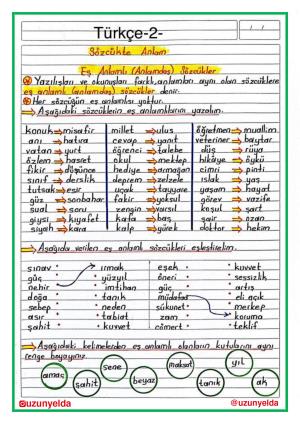 Türkçe-2-
Sözcükte Anlam
Eş Anlamlı (Anlamdaş) Sözcükler
Yazılışları ve okunuşları farklı, anlamları aynı olan sözcüklere
eş anlamlı (anlamdaş) sözcükler denir.
Her sözcüğün eş anlamlısı yoktur.
Aşağıdaki sözcüklerin eş anlamlılarını yazalım.
konuk → misafir millet → ulus öğretmen → muallim
anı → hatıra cevap → yanıt veteriner → baytar
vatan → yurt öğrenci → talebe düş → rüya
özlem → hasret okul → mektep hikâye → öykü
fikir → düşünce hediye → armağan cimri → pinti
sınıf → derslik deprem → zelzele ıslak → yaş
tutsak → esir uçak → tayyare yaşam → hayat
güz → sonbahar fakir → yoksul görev → vazife
sual → soru zengin → varsıl koşul → şart
giysi → kıyafet karşı → şair → ozan
siyah → kara kalp → yürek doktor → hekim
Aşağıda verilen eş anlamlı sözcükleri eşleştirelim.
sınav ırmak eşek kuvvet
güç yüzyıl öneri sessizlik
nehir imtihan güç artış
doğa tanık müdafaa eli açık
sebep neden sükunet merkep
asır tabiat zam koruma
şahit kuvvet cömert teklif
Aşağıdaki kelimelerden eş anlamlı olanların kutularını aynı
renge boyayınız.
amaç şahit sene beyaz maksat tanık yıl ak
@uzunyelda @uzunyelda